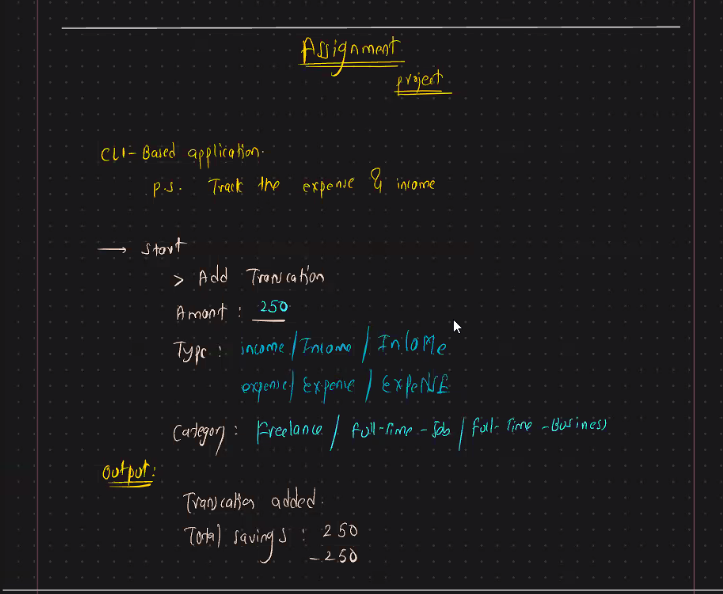 Assignment
project
CLI-Based application.
P.S. Track the expense & income
→ Start
> Add Transcation
Amont : 250
Type : income / Income / InCoMe
expense / Expense / EXPeNSE
Category : Freelance / Full-Time-Job / Full-Time-Business
Output:
Transcation added.
Total savings : 250
-250